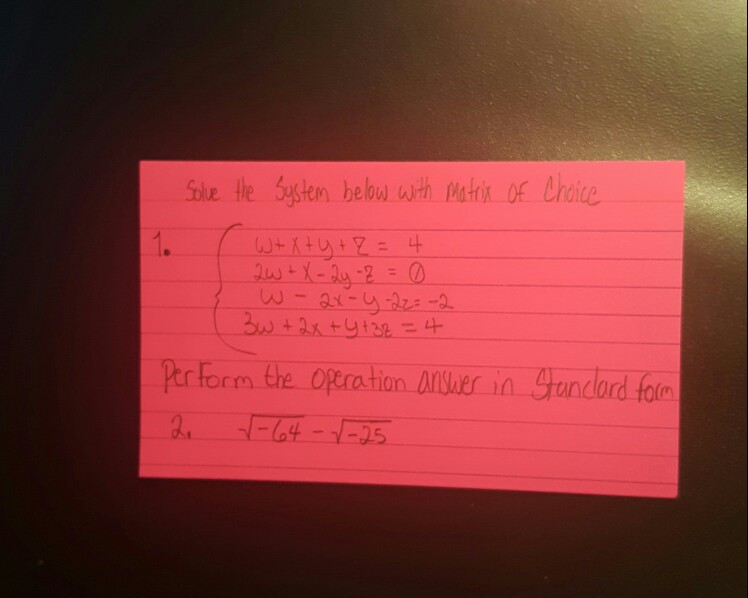 Solve the System below with Matrix of Choice
1. w + x + y + z = 4
2w + x - 2y - z = 0
w - 2x - y - 2z = -2
3w + 2x + y + 3z = 4
Perform the operation answer in Standard form
2. √-64 - √-25